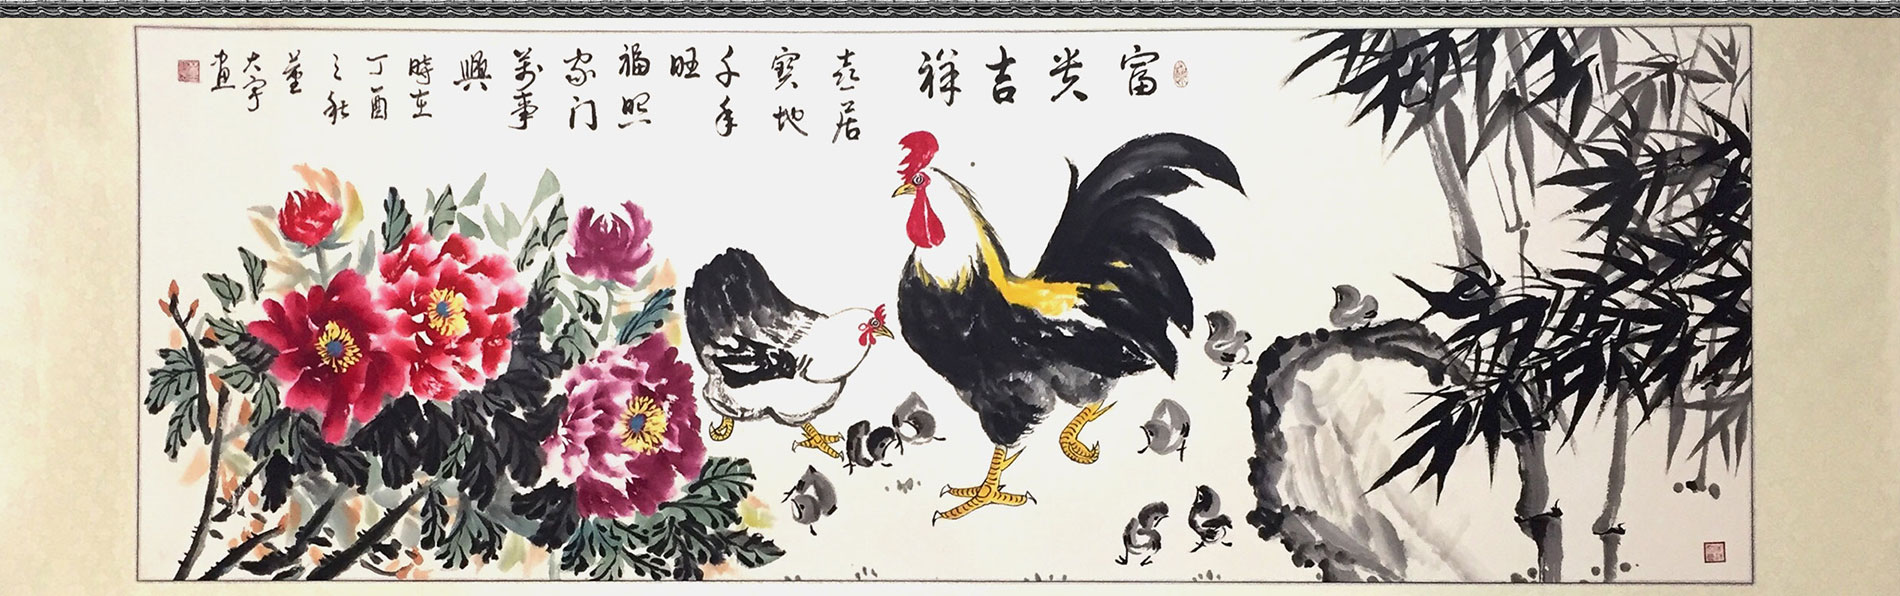 富贵吉祥
喜居
寶地
千年
旺
福照
家门
萬事
興
時在
丁酉
之秋
董
大宇
画